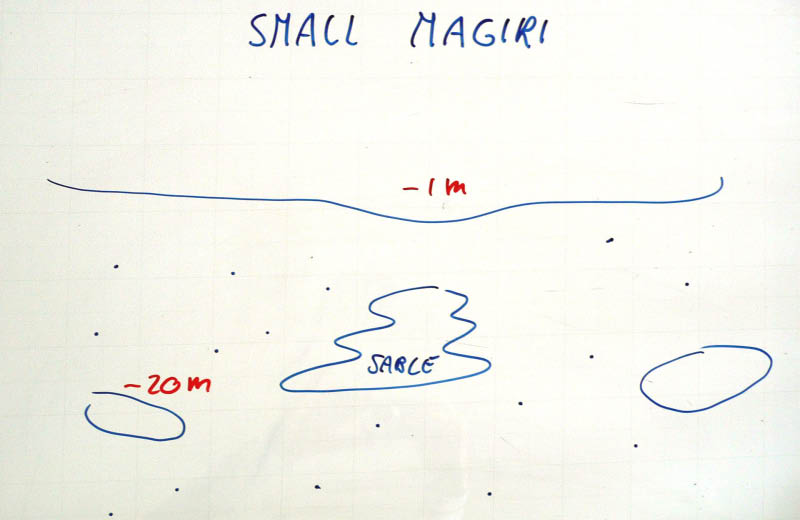 SMALL MAGIRI
-1m
SABLE
-20m